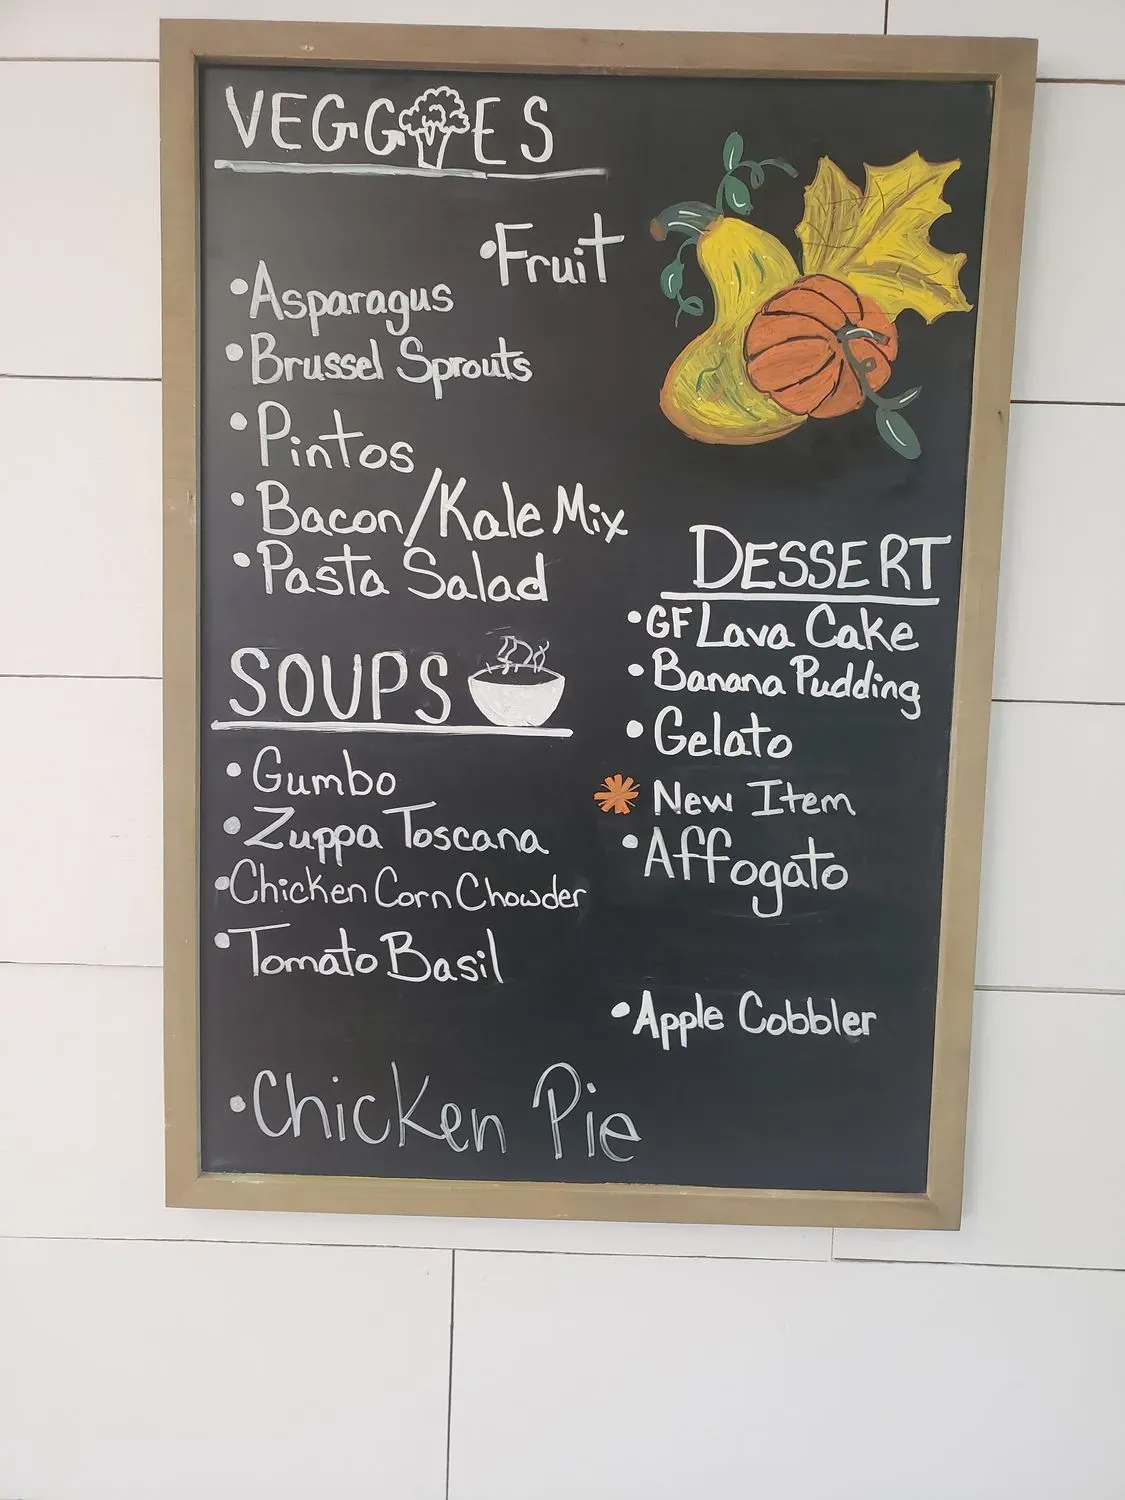 VEGGIES
• Fruit
• Asparagus
• Brussel Sprouts
• Pintos
• Bacon/Kale Mix
• Pasta Salad
SOUPS
• Gumbo
• Zuppa Toscana
• Chicken Corn Chowder
• Tomato Basil
• Chicken Pie
DESSERT
• GF Lava Cake
• Banana Pudding
• Gelato
New Item
• Affogato
• Apple Cobbler